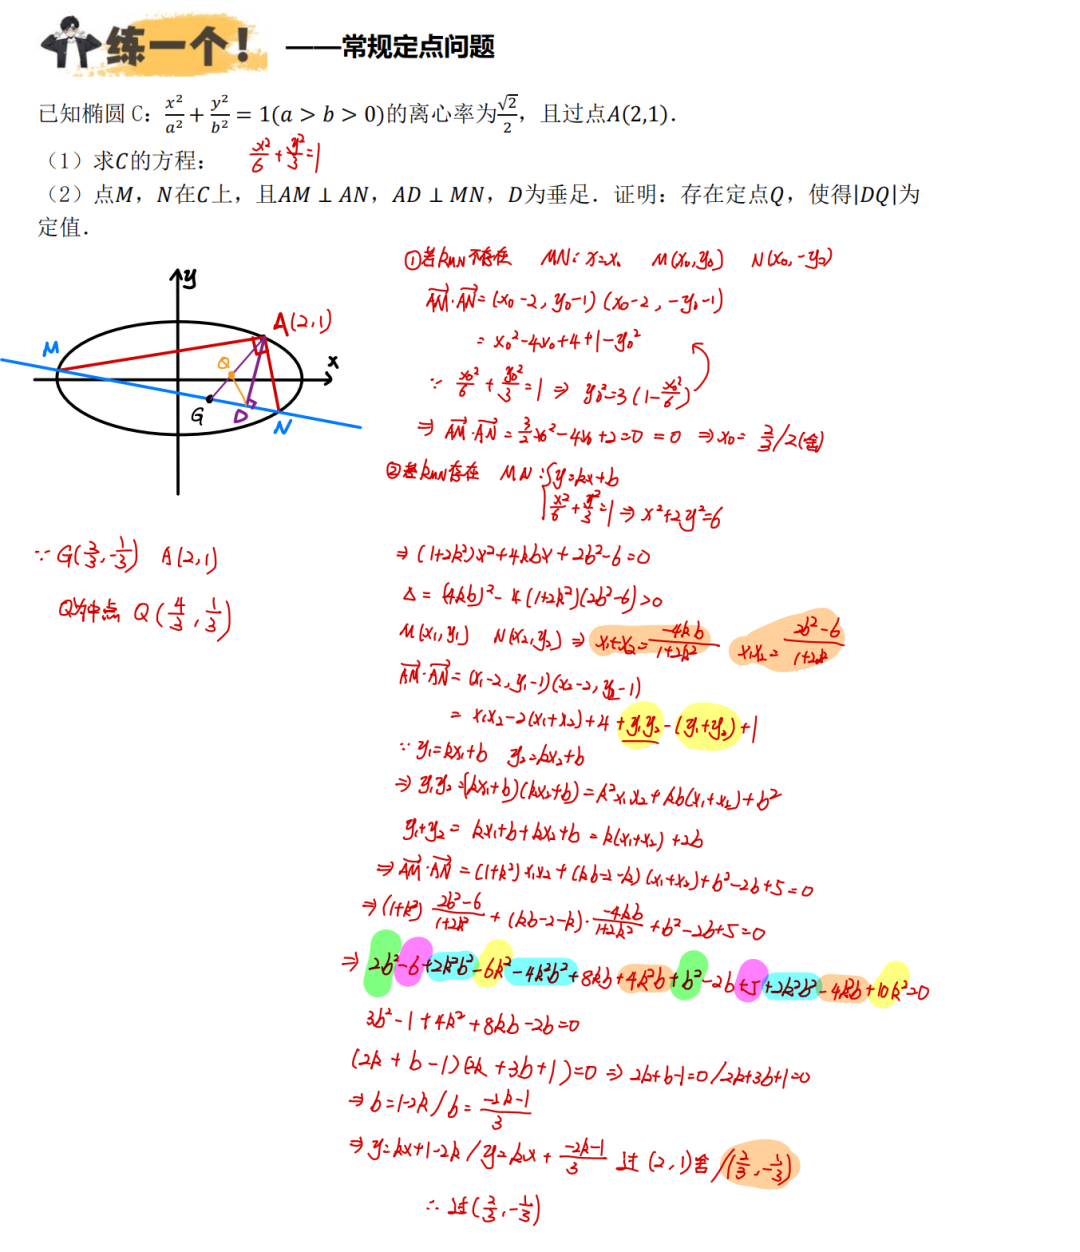 练一个！ ——常规定点问题
已知椭圆 C：x²/a² + y²/b² = 1(a > b > 0)的离心率为√2/2，且过点A(2,1)．
（1）求C的方程： x²/6 + y²/3 = 1
（2）点M，N在C上，且AM ⊥ AN，AD ⊥ MN，D为垂足．证明：存在定点Q，使得|DQ|为
定值．
y
A(2,1)
M
Q
x
G
D
N
∵ G(2/3, -1/3) A(2,1)
Q为中点 Q(4/3, 1/3)
①若kMN不存在 MN: x=x₀ M(x₀,y₀) N(x₀,-y₀)
AM·AN = (x₀-2, y₀-1)(x₀-2, -y₀-1)
= x₀²-4x₀+4+1-y₀²
∵ x₀²/6 + y₀²/3 = 1 ⇒ y₀²=3(1-x₀²/6)
⇒ AM·AN = 3/2x₀²-4x₀+2=0 = 0 ⇒ x₀= 2/3 / 2(舍)
②若kMN存在 MN: { y=kx+b
x²/6 + y²/3 = 1 ⇒ x²+2y²=6
⇒ (1+2k²)x²+4kbx+2b²-6=0
Δ = (4kb)²-4(1+2k²)(2b²-6)>0
M(x₁,y₁) N(x₂,y₂) ⇒ x₁+x₂= -4kb/1+2k² x₁x₂= 2b²-6/1+2k²
AM·AN = (x₁-2, y₁-1)(x₂-2, y₂-1)
= x₁x₂-2(x₁+x₂)+4+y₁y₂-(y₁+y₂)+1
∵ y₁=kx₁+b y₂=kx₂+b
⇒ y₁y₂=(kx₁+b)(kx₂+b)=k²x₁x₂+kb(x₁+x₂)+b²
y₁+y₂ = kx₁+b+kx₂+b = k(x₁+x₂)+2b
⇒ AM·AN = (1+k²)x₁x₂+(kb-2-k)(x₁+x₂)+b²-2b+5=0
⇒ (1+k²) 2b²-6/1+2k² + (kb-2-k)· -4kb/1+2k² + b²-2b+5=0
⇒ 2b²-6+2k²b²-6k²-4k²b²+8kb+4k²b+b²-2b+5+2k²b²-4k²b+10k²=0
3b²-1+4k²+8kb-2b=0
(2k+b-1)(2k+3b+1)=0 ⇒ 2k+b-1=0/2k+3b+1=0
⇒ b=1-2k / b= -2k-1/3
⇒ y=kx+1-2k / y=kx+ -2k-1/3 过(2,1)舍/(2/3, -1/3)
∴ 过(2/3, -1/3)